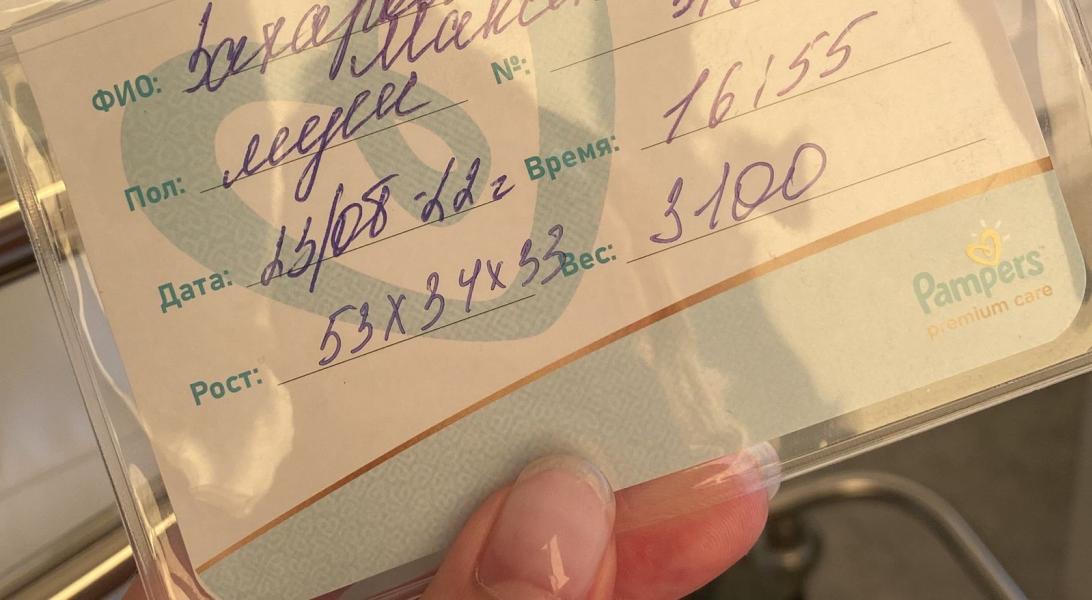 ФИО:
№:
Пол: муж
Время: 16:55
Дата: 23/08-22г
Вес: 3100
Рост: 53х34х33
Pampers™
premium care